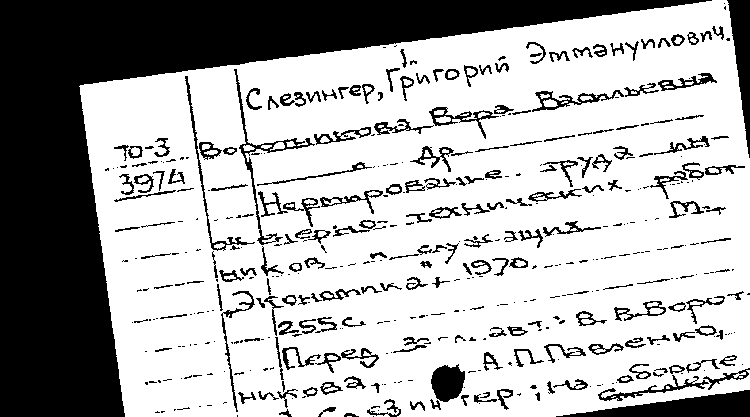 1.
Слезингер, Григорий Эммануилович.
ТО-3 Воротникова, Вера Васильевна
3974 и др
Нормирование труда ин-
женерно-технических работ-
ников и служащих М.,
„Экономика", 1970.
255 с.
Перед загл. авт.: В. В. Ворот-
никова, А. П. Павленко,
Слезингер; на обороте